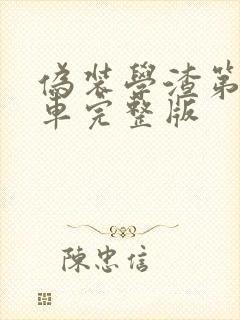 偽装學渣第
車完整版
陳忠信